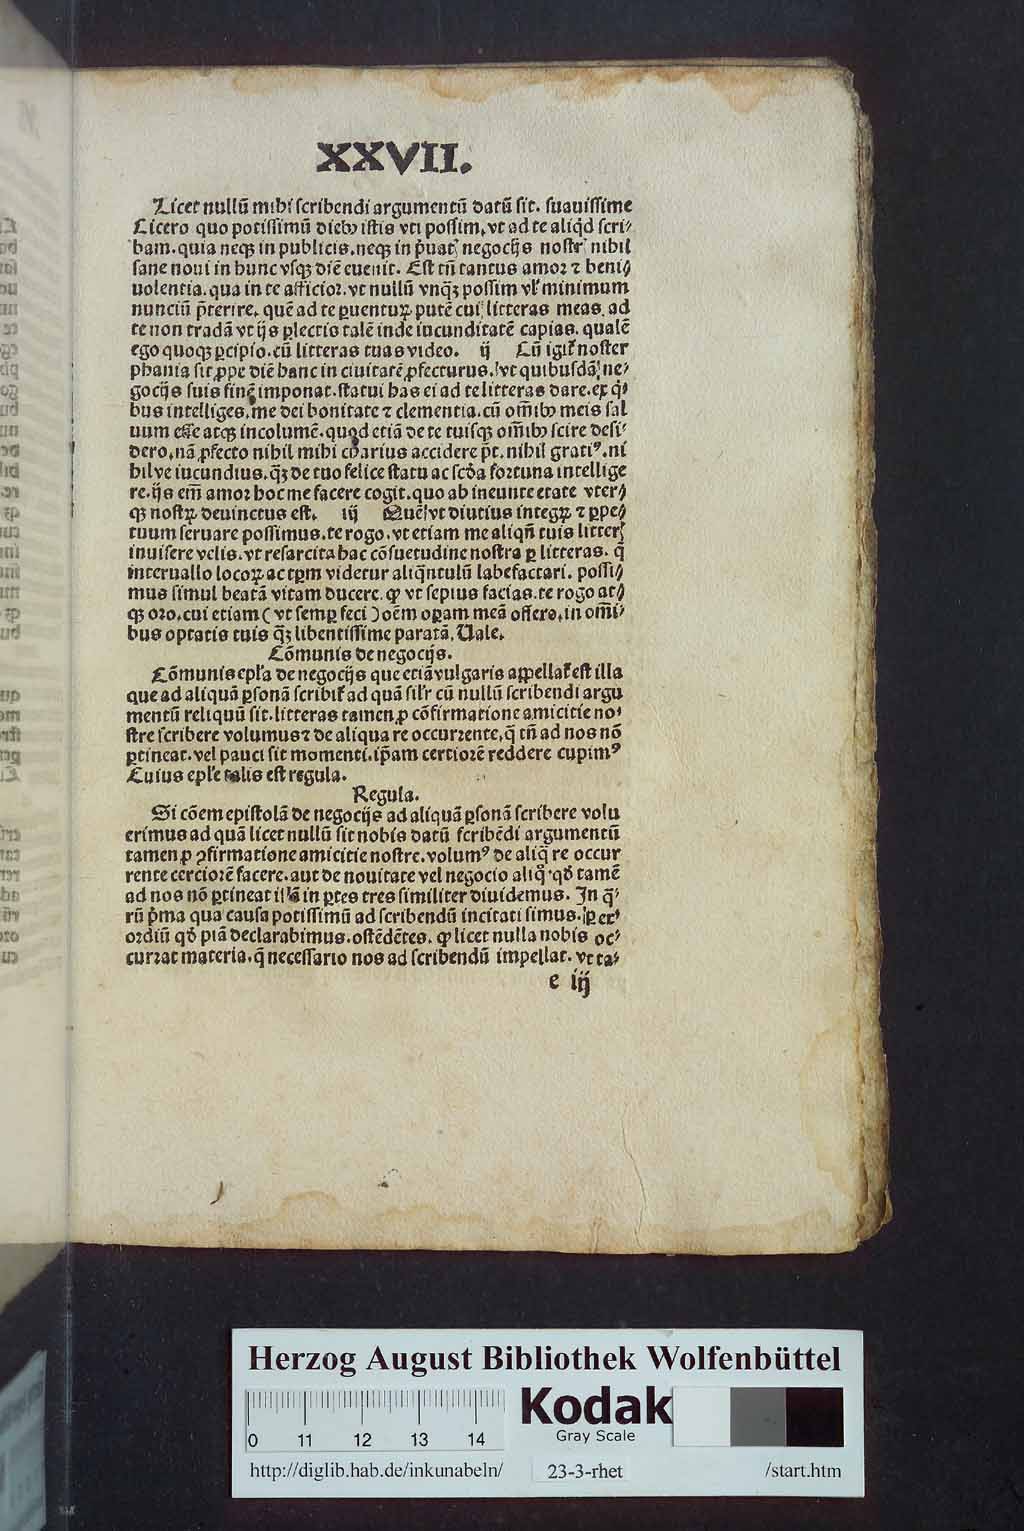 XXVII.
Licet nullū mihi scribendi argumentū datū sit. suauissime
Cicero quo potissimū dieb⁹ istis vti possim. vt ad te aliq̄d scri⸗
bam. quia neqꝫ in publicis. neqꝫ in p̄uat negocijs nostr nihil
sane noui in hunc vsqꝫ diē euenit. Est tn̄ tantus amor ⁊ beni⸗
uolentia. qua in te afficior. vt nullū vnq̄ꝫ possim vl̄ minimum
nunciū p̄terire. quē ad te ꝑuenturꝝ putē cui litteras meas. ad
te non tradā vt ijs ꝑlectis talē inde iucunditatē capias. qualē
ego quoqꝫ ꝑcipio. cū litteras tuas video. ij Cū igit̄ noster
phania sit ꝓpe diē hanc in ciuitatē ꝓfecturus. vt quibusdā ne⸗
gocijs suis finē imponat. statui has ei ad te litteras dare. ex q̄⸗
bus intelliges. me dei bonitate ⁊ clementia. cū om̄ib⁹ meis sal
uum esse atqꝫ incolumē. quod etiā de te tuisqꝫ om̄ib⁹ scire desi⸗
dero. nā ꝓfecto nihil mihi charius accidere p̄t. nihil grati⁹. ni
hilve iucundius. q̄ꝫ de tuo felice statu ac scd̄a fortuna intellige
re. ijs em̄ amor hoc me facere cogit. quo ab ineunte etate vter⸗
qꝫ nostꝝ deuinctus est. iij Quē vt diutius integꝝ ⁊ ꝑpe⸗
tuum seruare possimus. te rogo. vt etiam me aliqn̄ tuis litter
inuisere velis. vt resarcita hac cōsuetudine nostra ꝑ litteras. q̄
interuallo locoꝝ ac tꝑm videtur aliq̄ntulū labefactari. possi⸗
mus simul beatā vitam ducere. ꝙ vt sepius facias. te rogo at⸗
qꝫ oro. cui etiam ( vt semꝑ feci ) oēm oꝑam meā offero. in om̄i⸗
bus optatis tuis q̄ꝫ libentissime paratā. Uale.
Cōmunis de negocijs.
Cōmunis epl̄a de negocijs que etiā vulgaris appellat̄ est illa
que ad aliquā ꝑsonā scribit̄ ad quā sil̄r cū nullū scribendi argu
mentū reliquū sit. litteras tamen ꝓ cōfirmatione amicitie no⸗
stre scribere volumus ⁊ de aliqua re occurrente. q̄ tn̄ ad nos nō
ꝑtineat. vel pauci sit momenti. ip̄am certiorē reddere cupim⁹
Cuius epl̄e talis est regula.
Regula.
Si cōem epistolā de negocijs ad aliquā ꝑsonā scribere volu
erimus ad quā licet nullū sit nobis datū scribēdi argumentū
tamen ꝓ ꝯfirmatione amicitie nostre. volum⁹ de aliq̄ re occur
rente cerciorē facere. aut de nouitate vel negocio aliq̊ qd̄ tamē
ad nos nō ꝑtineat illā in ꝑtes tres similiter diuidemus. In q̄⸗
rū p̄ma qua causa potissimū ad scribendū incitati simus. ꝑ ex⸗
ordiū qd̄ piā declarabimus. ostēdētes. ꝙ licet nulla nobis oc⸗
currat materia. q̄ necessario nos ad scribendū impellat. vt ta⸗
e iij
Herzog August Bibliothek Wolfenbüttel
Kodak
Gray Scale
0 11 12 13 14
http://diglib.hab.de/inkunabeln/ 23-3-rhet /start.htm